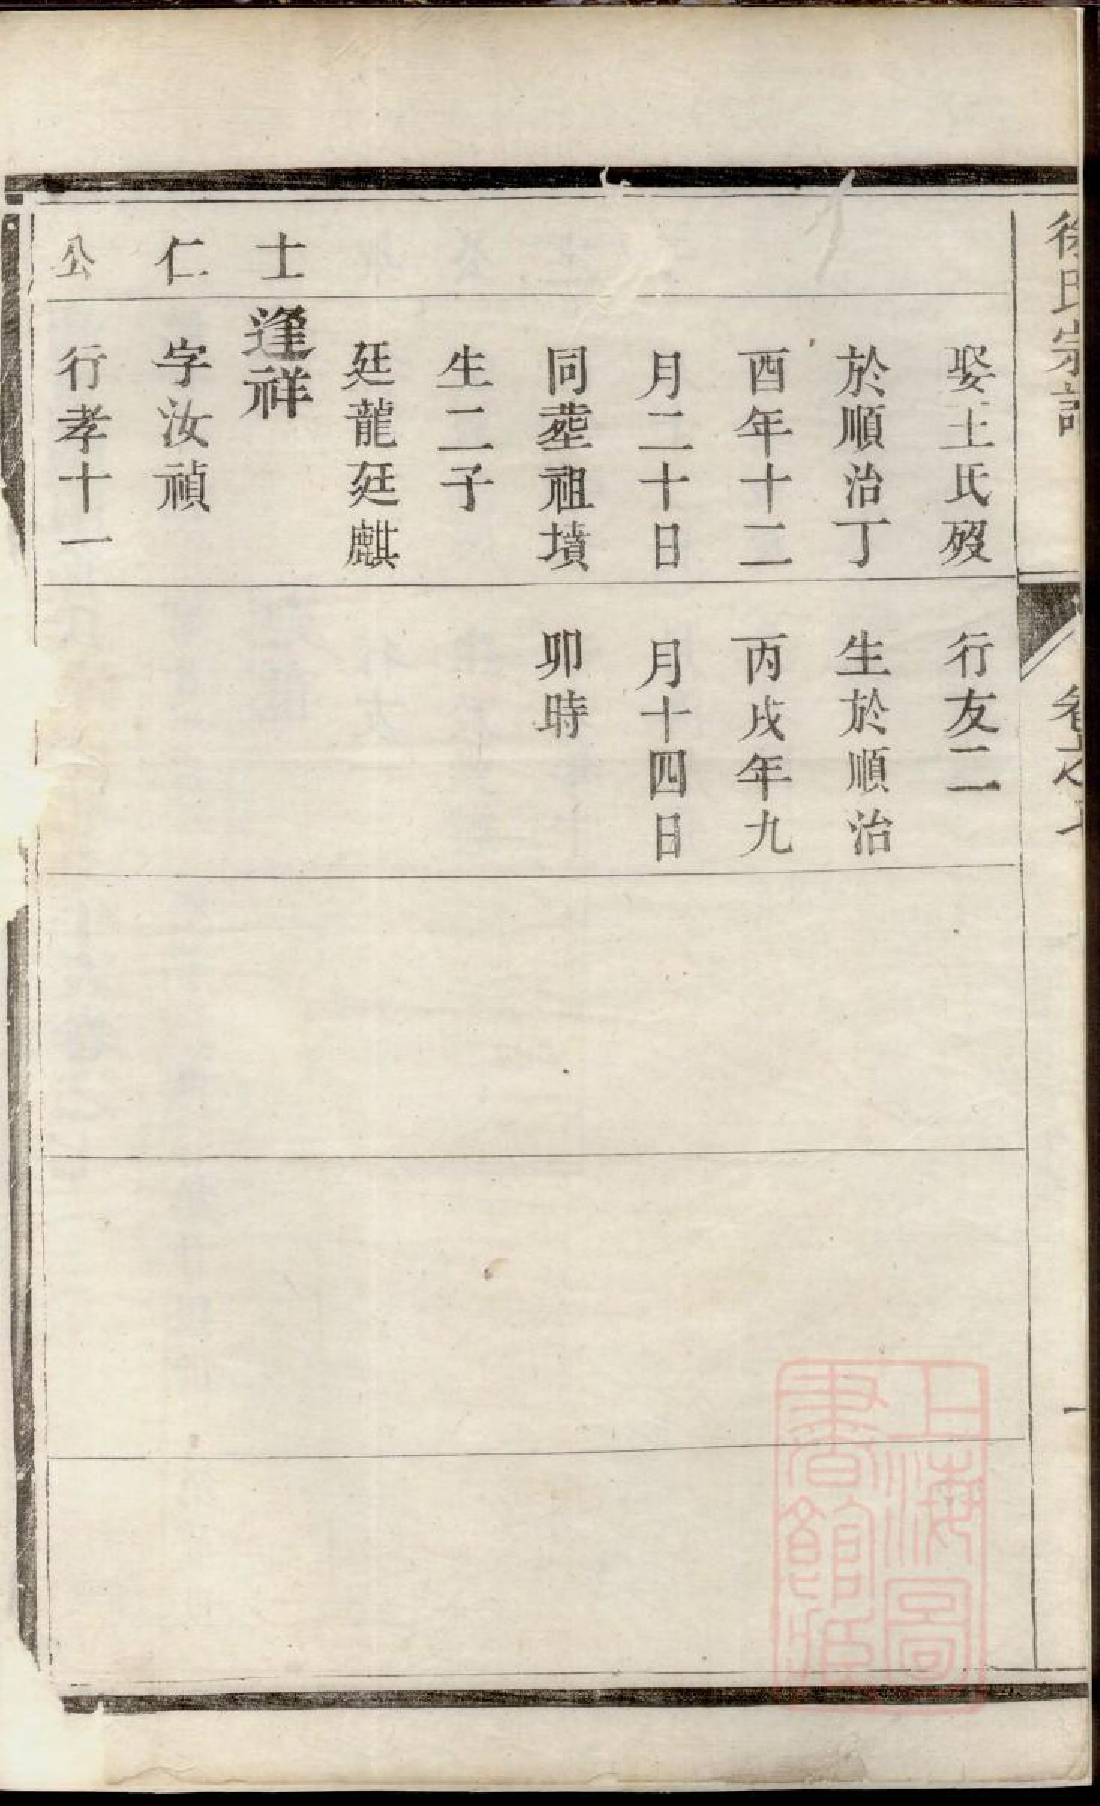 徐氏宗譜
卷之七
一
娶王氏歿
於順治丁
酉年十二
月二十日
同塟祖墳
生二子
廷龍廷麒
行友二
生於順治
丙戌年九
月十四日
卯時
士仁公
逢祥
字汝禎
行孝十一
上海圖
書館藏